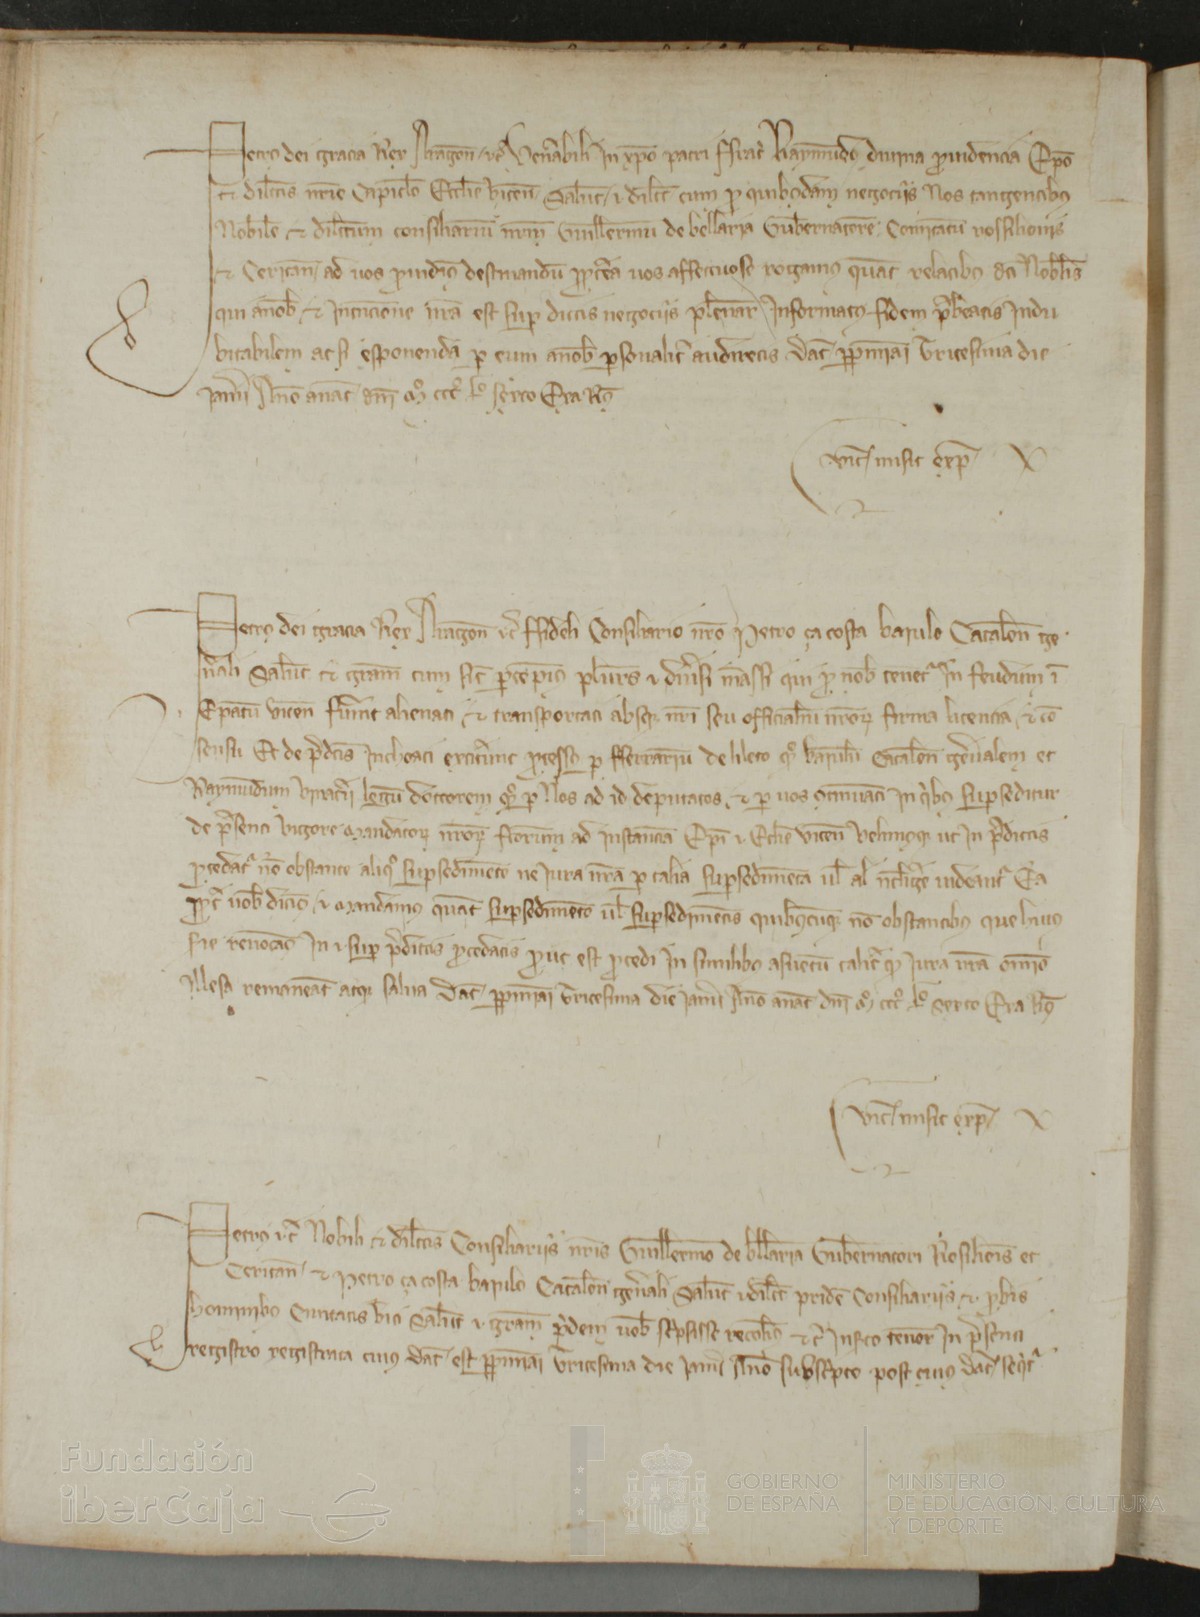 Petrus dei gracia Rex Aragon etc Venerabili in xpo patri ffratri Raymundo divina providencia Epo
et dilectis nostris Capitulo Ecclesie vicen Salutem et dilect cum pro quibusdam negociis Nos tangentibus
Nobilem et dilectum consiliarium nostrum Guillermum de bellaria Gubernatorem Comitatum rossilionis
et Ceritan ad vos providimus destinandum propterea vos affectuose rogamus quatenus relatibus dicti Nobilis
qui a nobis et intencione nostra est super dictis negociis plenarie informatus fidem prebeatis indu
bitabilem ac si exponenda per eum a nobis personaliter audiretis Dat perpiniani Tricesima die
januarii Anno a nat dni Mo CCCo Lo sexto Exa R
vice misit exp
Petrus dei gracia Rex Aragon etc ffideli Consiliario nostro Petro ça costa baiulo Catalon ge
nerali Salutem et gratiam cum sicut percepimus plures et diversi mansi qui pro nobis tenentur in feudum in
Epatu vicen fuerint alienati et transportati absque nostri seu officialium nostrorum firma licencia et con
sensu Et de predictis inchoati extiterint processus per fferrarium de lileto quondam baiulum Catalon generalem et
Raymundum legum doctorem quondam per Nos ad id deputatos et per vos continuati in quibus supersedetur
de presenti vigore mandatorum nostrorum factorum ad instanciam Epi et Ecclesie vicen velimusque ut in predictis
procedatur non obstante aliquo supersedimento ne jura nostra per talia supersedimenta vel al negligi videantur Ea
propter vobis dicimus et mandamus quatenus supersedimento vel supersedimentis quibuscumque non obstantibus que huius
serie revocamus in et super predictis procedatis prout est procedi in similibus assuetum taliter quod jura nostra omnimode
illesa remaneant atque salva Dat perpiniani Tricesima die januarii Anno a nat dni Mo CCCo Lo sexto Exa R
vice misit exp
Petrus etc Nobili et dilectis Consiliariis nostris Guillermo de bellaria Gubernatori Rossilionis et
Ceritan et Petro ça costa baiulo Catalon generali Salutem et dilect pridem Consiliariis et probis
hominibus Civitatis vici Salutem et gratiam pridem vobis scripsisse recolimus etc tenor in presenti
registro registrata cuius dat est perpiniani Tricesima die januarii Anno subscripto post cuius dat sequitur
Fundación
iberCaja
GOBIERNO
DE ESPAÑA
MINISTERIO
DE EDUCACIÓN, CULTURA
Y DEPORTE